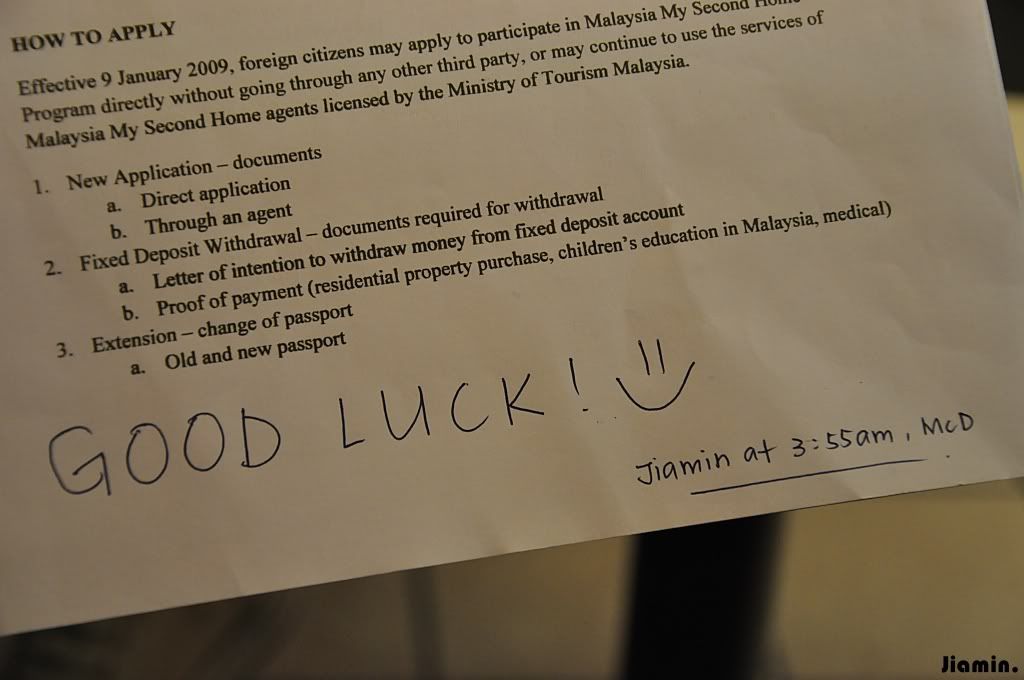 HOW TO APPLY
Effective 9 January 2009, foreign citizens may apply to participate in Malaysia My Second Home
Program directly without going through any other third party, or may continue to use the services of
Malaysia My Second Home agents licensed by the Ministry of Tourism Malaysia.
1. New Application – documents
a. Direct application
b. Through an agent
2. Fixed Deposit Withdrawal – documents required for withdrawal
a. Letter of intention to withdraw money from fixed deposit account
b. Proof of payment (residential property purchase, children's education in Malaysia, medical)
3. Extension – change of passport
a. Old and new passport
GOOD LUCK! =)
Jiamin at 3:55am, McD
Jiamin.